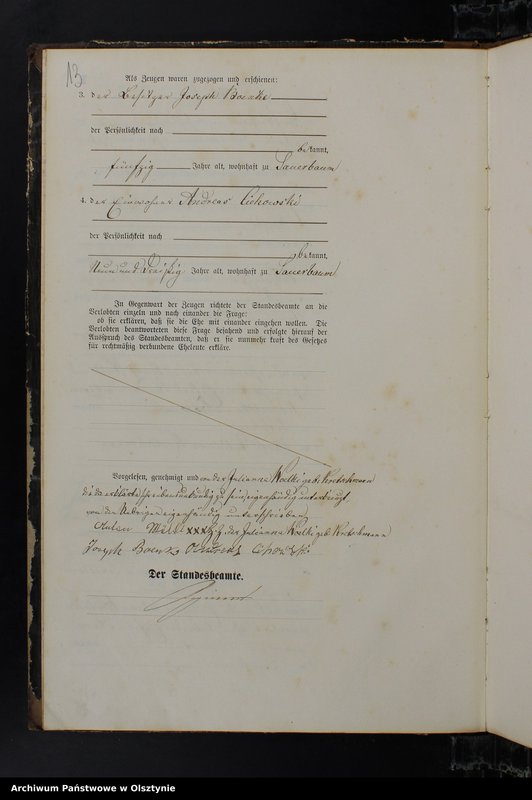 13
Als Zeugen waren zugezogen und erschienen:
3. der Besitzer Joseph
der Persönlichkeit nach
bekannt,
fünfzig Jahre alt, wohnhaft zu Sauerbaum
4. der Einwohner Andreas Cichowski
der Persönlichkeit nach
bekannt,
Neun und Dreißig Jahre alt, wohnhaft zu Sauerbaum
In Gegenwart der Zeugen richtete der Standesbeamte an die
Verlobten einzeln und nach einander die Frage:
ob sie erklären, daß sie die Ehe mit einander eingehen wollen. Die
Verlobten beantworteten diese Frage bejahend und erfolgte hierauf der
Ausspruch des Standesbeamten, daß er sie nunmehr kraft des Gesetzes
für rechtmäßig verbundene Eheleute erkläre.
Vorgelesen, genehmigt und von der Julianna geb.
die da erklärte schreibensunkundig zu sein eigenhändig unterkreuzt
von den Uebrigen eigenhändig unterschrieben
xxx Hz. der Julianna geb.
Joseph
Der Standesbeamte.
Archiwum Państwowe w Olsztynie